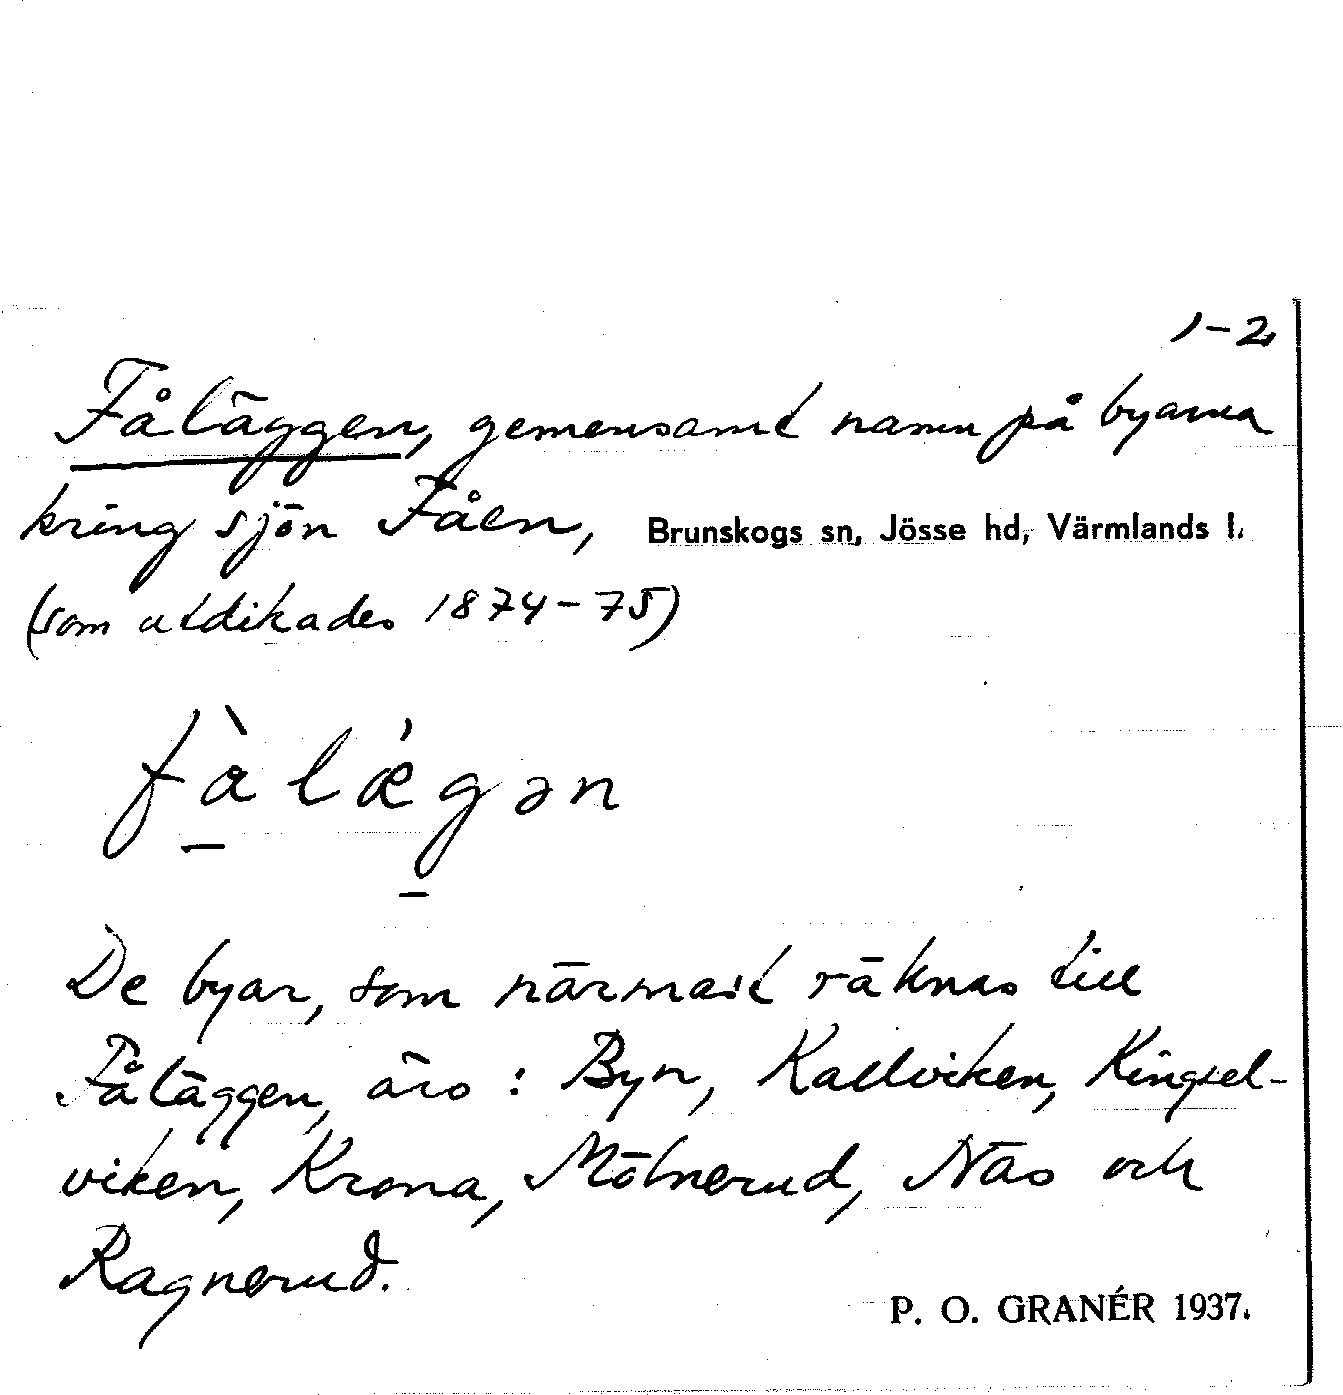 1-2
Fåläggen, gemensamt namn på byarna
kring sjön Fåen, Brunskogs sn, Jösse hd, Värmlands l.
(som utdikades 1874-75)
fàlǽgən
De byar, som närmast räknas till
Fåläggen, äro: Byn, Kallviken, Kingsel-
viken, Krona, Mölnerud, Näs och
Ragnerud.
P. O. GRANÉR 1937.